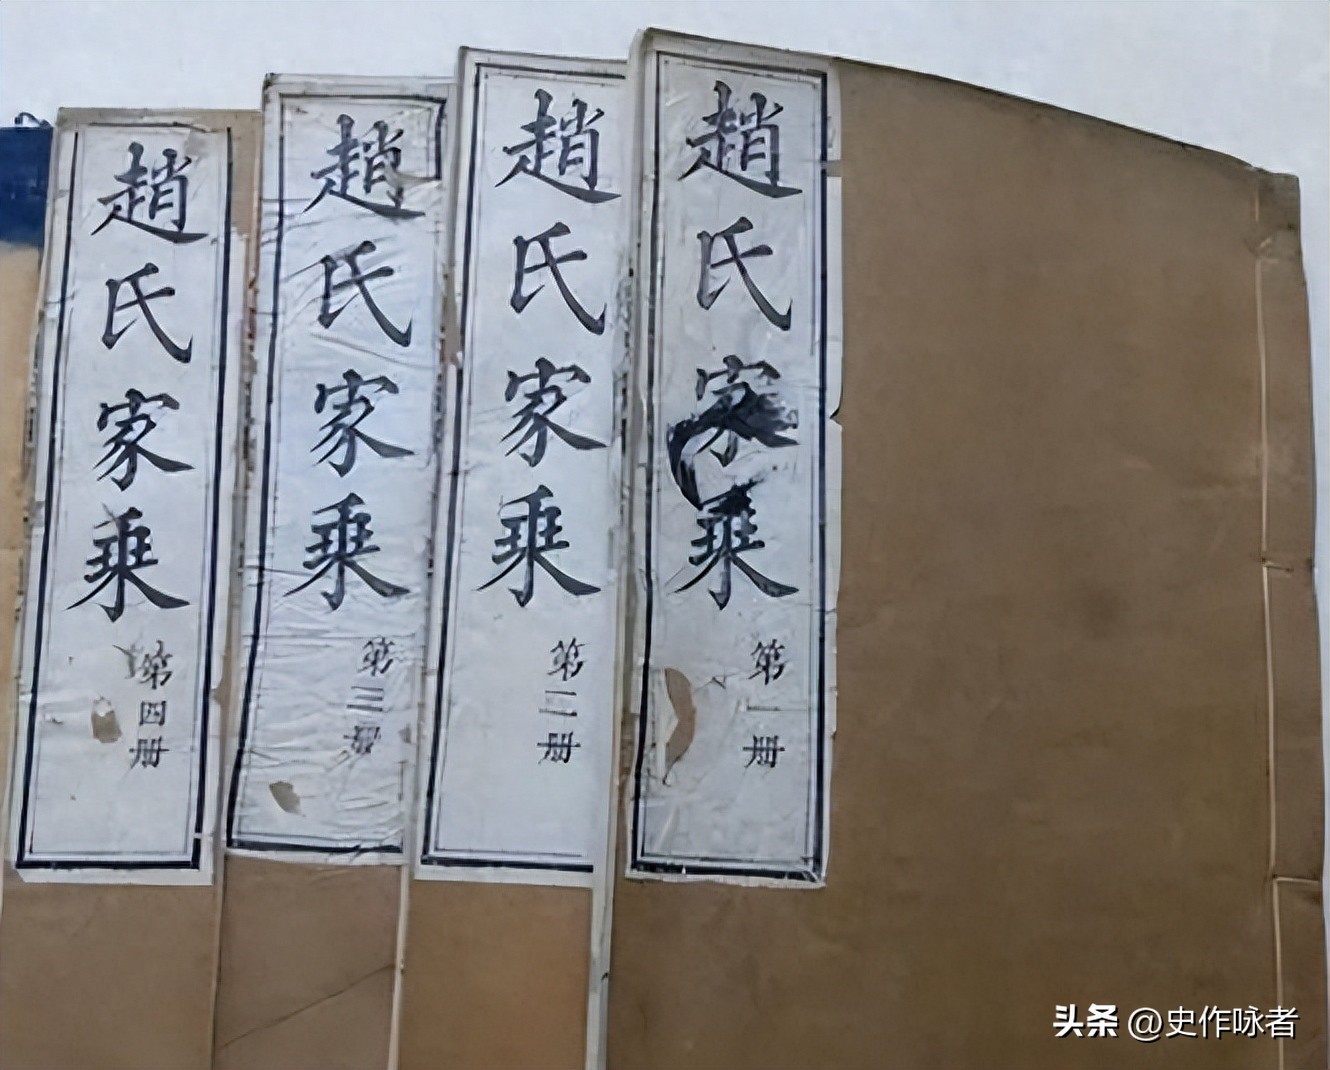 趙氏家乗
第一册
趙氏家乗
第二册
趙氏家乗
第三册
趙氏家乗
第四册
头条 @史作咏者